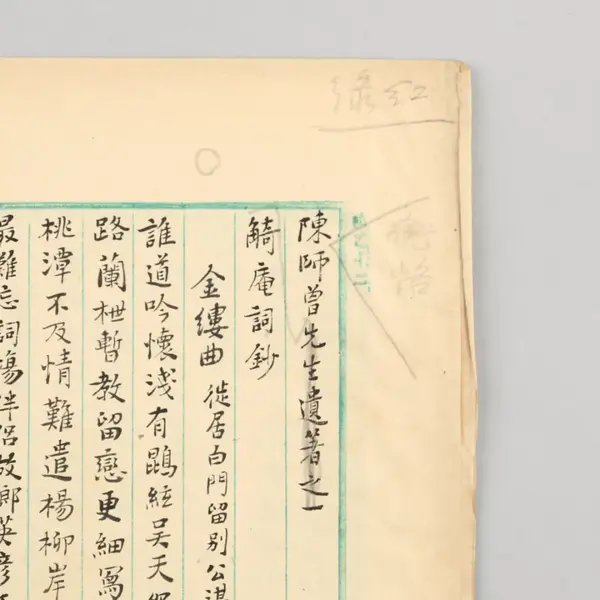 綠紅
陳師曾先生遺著之一
觭庵詞鈔
金縷曲 徙居白門留別公湛
誰道吟懷淺有鵾絃吳天
路蘭枻暫教留戀更細寫
桃潭不及情難遣楊柳岸
最難忘詞場伴侶故鄉英彥